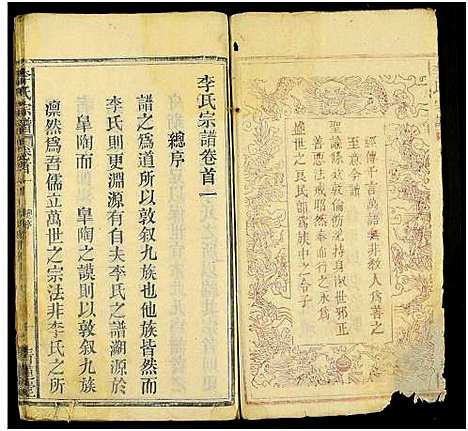 經傳千言萬語無非教人為善之
至意今譜
聖謨條款敦倫飭紀持身淑世邪正
善惡法戒昭然奉而行之永為
盛世之良民韵為族中之令子
李氏宗譜卷首一
總序
譜之為道所以敦叙九族也他族皆然而
李氏則更淵源有自夫李氏之譜溯源於
皐陶而皐陶之謨則以敦叙九族
凛然為吾儒立萬世之宗法非李氏之所
李氏宗譜
卷首
總序